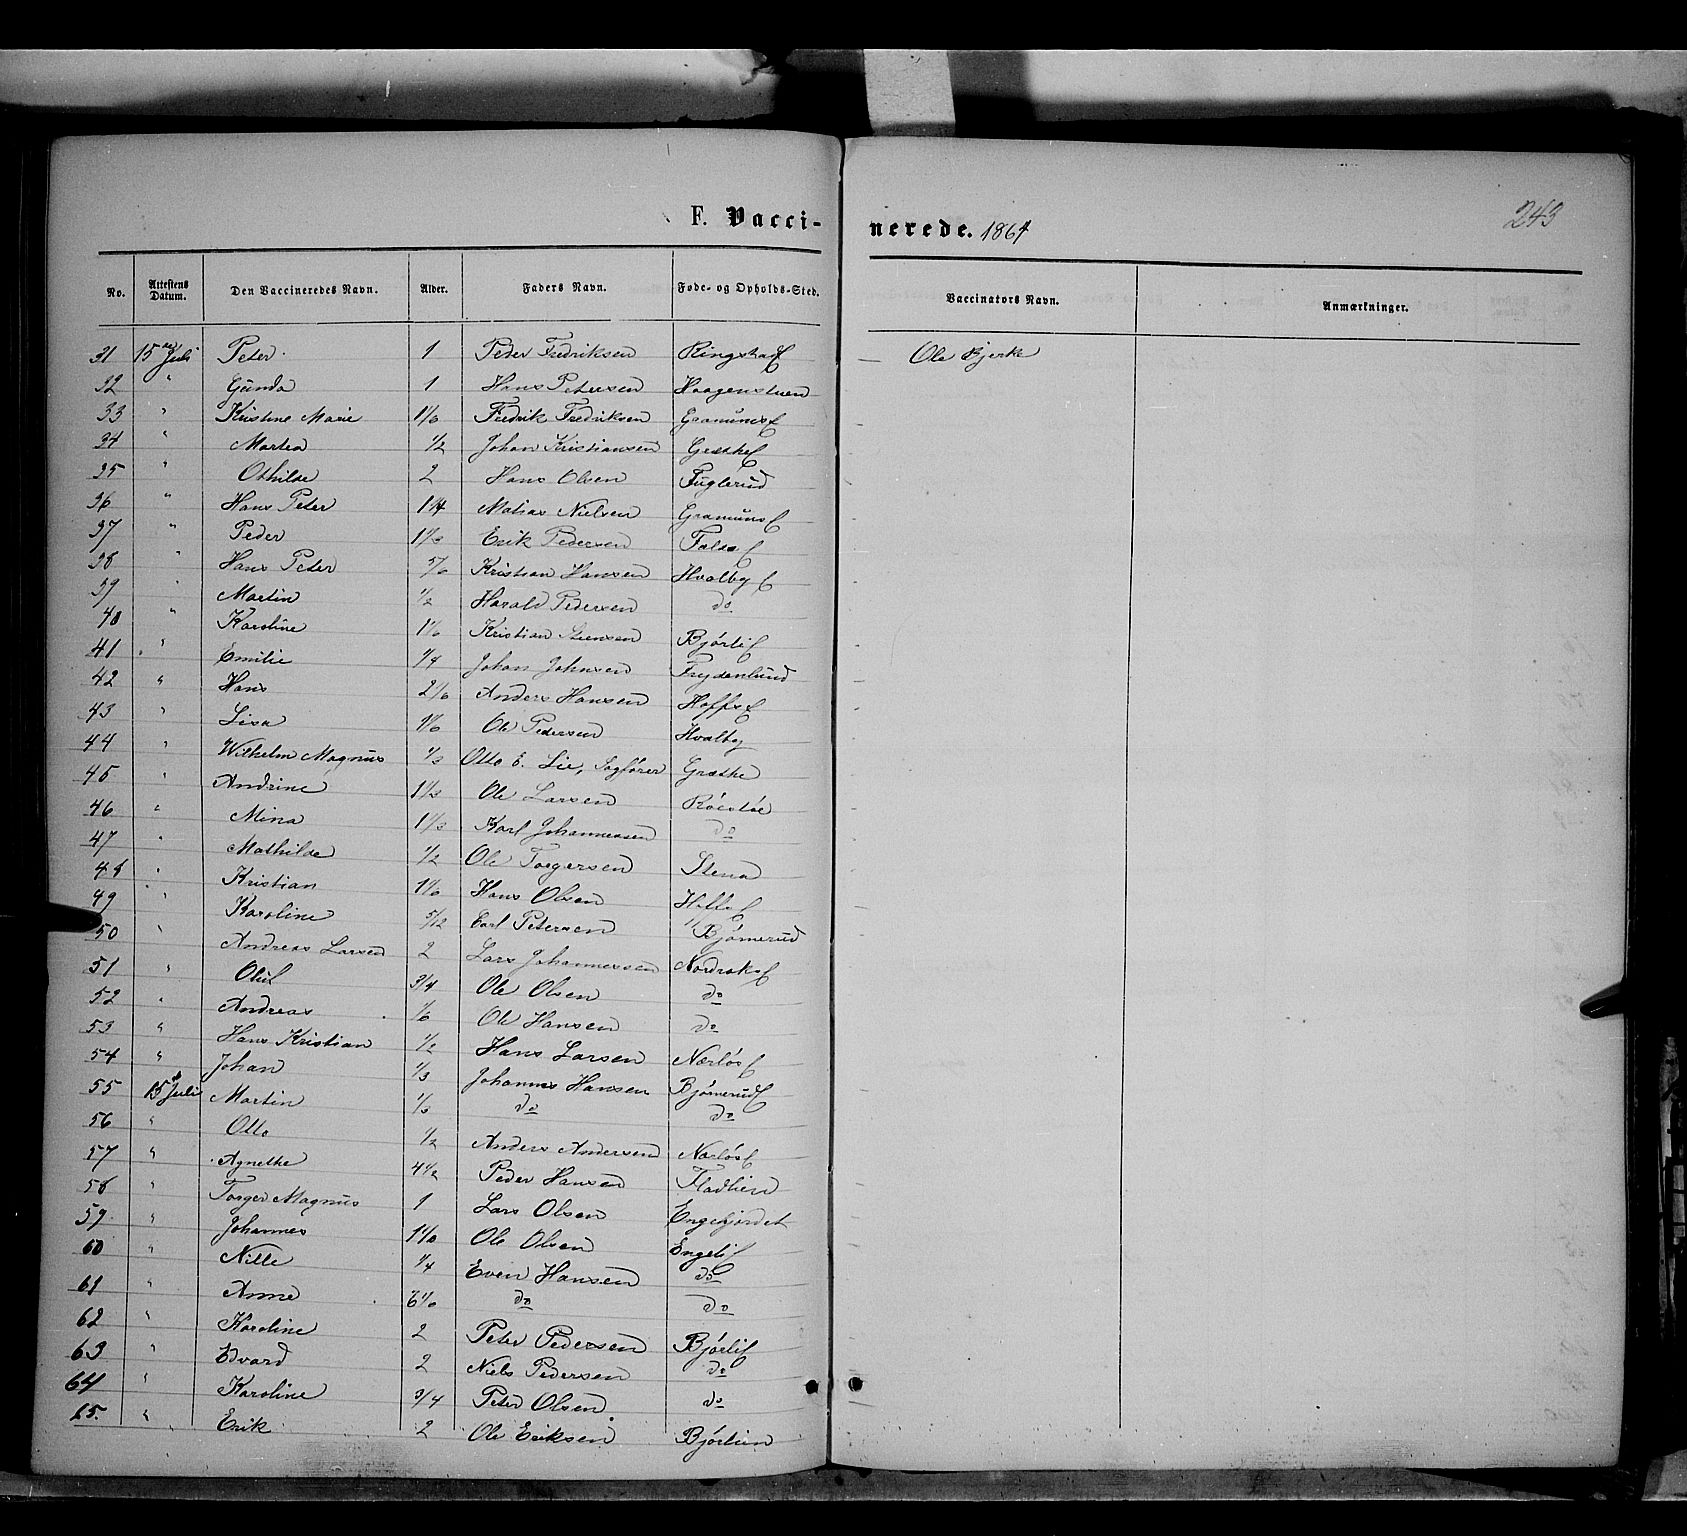 F. Vaccinerede. 1864
243
No. Attestens Datum. Den Vaccineredes Navn. Alder. Faders Navn. Føde- og Opholds-Sted. Vaccinators Navn. Anmærkninger.
31 15 Juli Peter 1 Peder Fredriksen Ole Bjerke
32 " Gunda 1 Hans Petersen Haagenstuen
33 " Kristine Marie 1 1/6 Fredrik Fredriksen
34 " Martea 1/2 Johan Kristiansen
35 " Othilde 2 Hans Olsen Fuglerud
36 " Hans Peter 1 1/4 Matias Nielsen
37 " Peder 1 1/3 Erik Pedersen
38 " Hans Peter 5/6 Kristian Hansen Hvalby
39 " Martin 1/2 Harald Pedersen do
40 " Karoline 1 1/6 Kristian Steensen
41 " Emilie 1/4 Johan Johnsen Frydenlund
42 " Hans 2 1/6 Anders Hansen
43 " Lisa 1 1/6 Ole Pedersen Hvalby
44 " Wilhelm Magnus 1/3 Otto E. Lie, Sagfører Græthe
45 " Andrine 1 1/3 Ole Larsen
46 " Mina 1 1/3 Karl Johannessen do
47 " Mathilde 1/2 Ole Torgersen Stena
48 " Kristian 1 1/6 Hans Olsen
49 " Karoline 5/12 Carl Petersen Bjømerud
50 " Andreas Larsen 2 Lars Johannessen
51 " Oluf 3/4 Ole Olsen do
52 " Andreas 1/6 Ole Hansen do
53 " Hans Kristian 1/2 Hans Larsen
54 " Johan 1/3 Johannes Hansen
55 15 Juli Martin 1/3 do do
56 " Otto 1/2 Anders Andersen
57 " Agnethe 4 1/2 Peder Hansen Fladlien
58 " Torger Magnus 1 Lars Olsen Engehjordet
59 " Johannes 1 1/6 Ole Olsen
60 " Nille 1/4 Even Hansen do
61 " Anne 6 1/6 do do
62 " Karoline 2 Peter Pedersen
63 " Edvard 2 Niels Pedersen do
64 " Karoline 3/4 Peter Olsen do
65. " Erik 2 Ole Eriksen Bjørlien